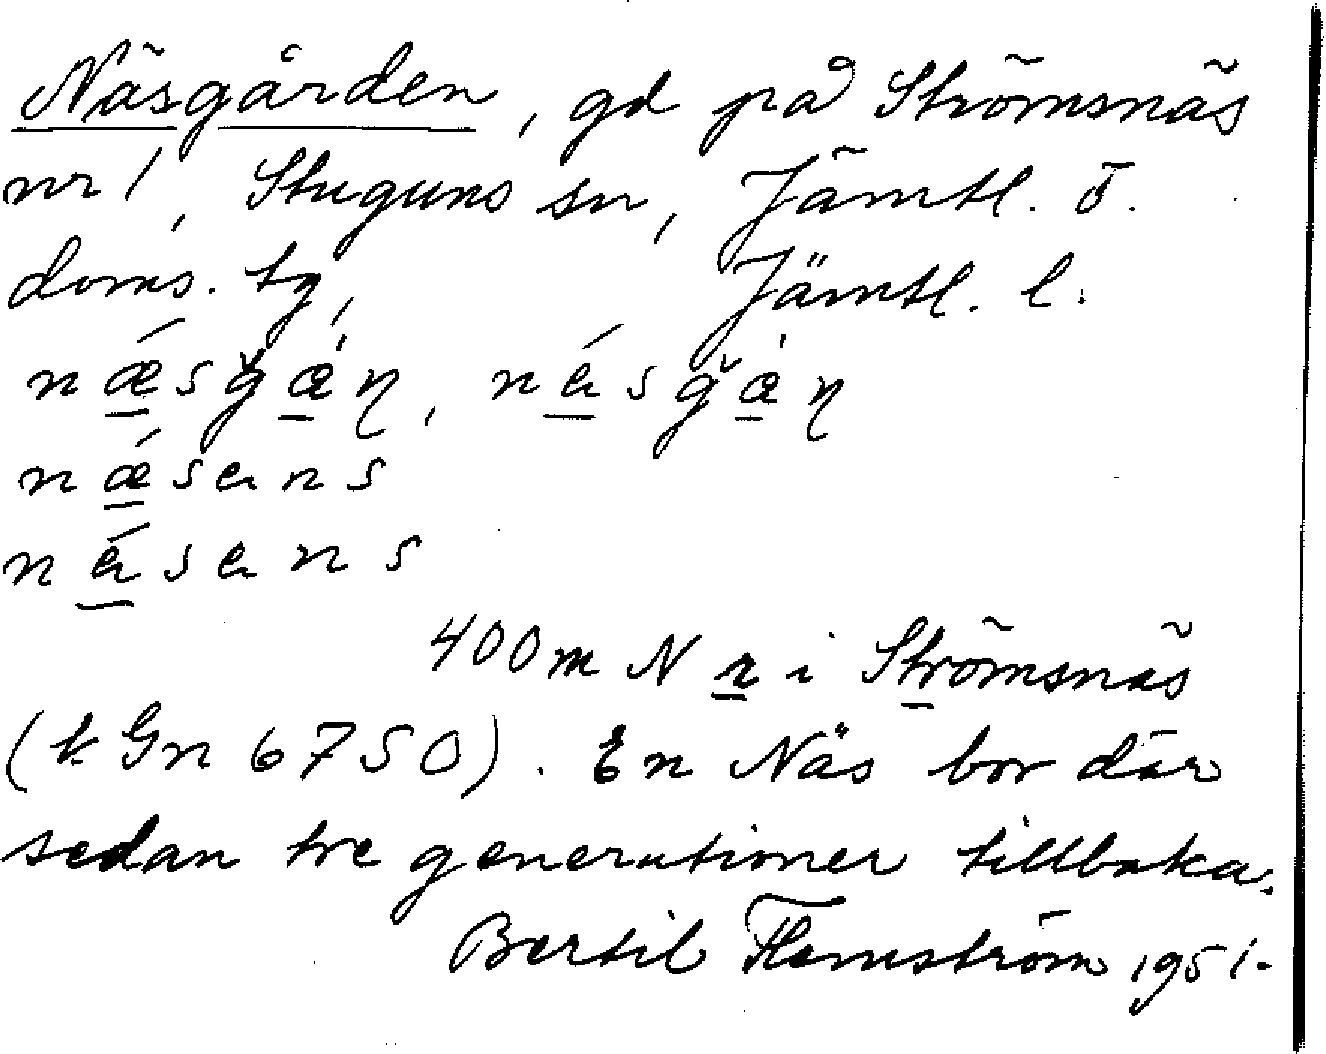 Näsgården, gd på Strömsnäs
nr 1, Stuguns sn, Jämtl. ö.
doms. tg, Jämtl. l.
nǽ̲sğæ̲̀ŋ, ná̲sğæ̲̀ŋ
nǽ̲sens
ná̲sens
400 m N r i Strömsnäs
(k Gn 6750). En Näs bor där
sedan tre generationer tillbaka.
Bertil Flemström 1951.